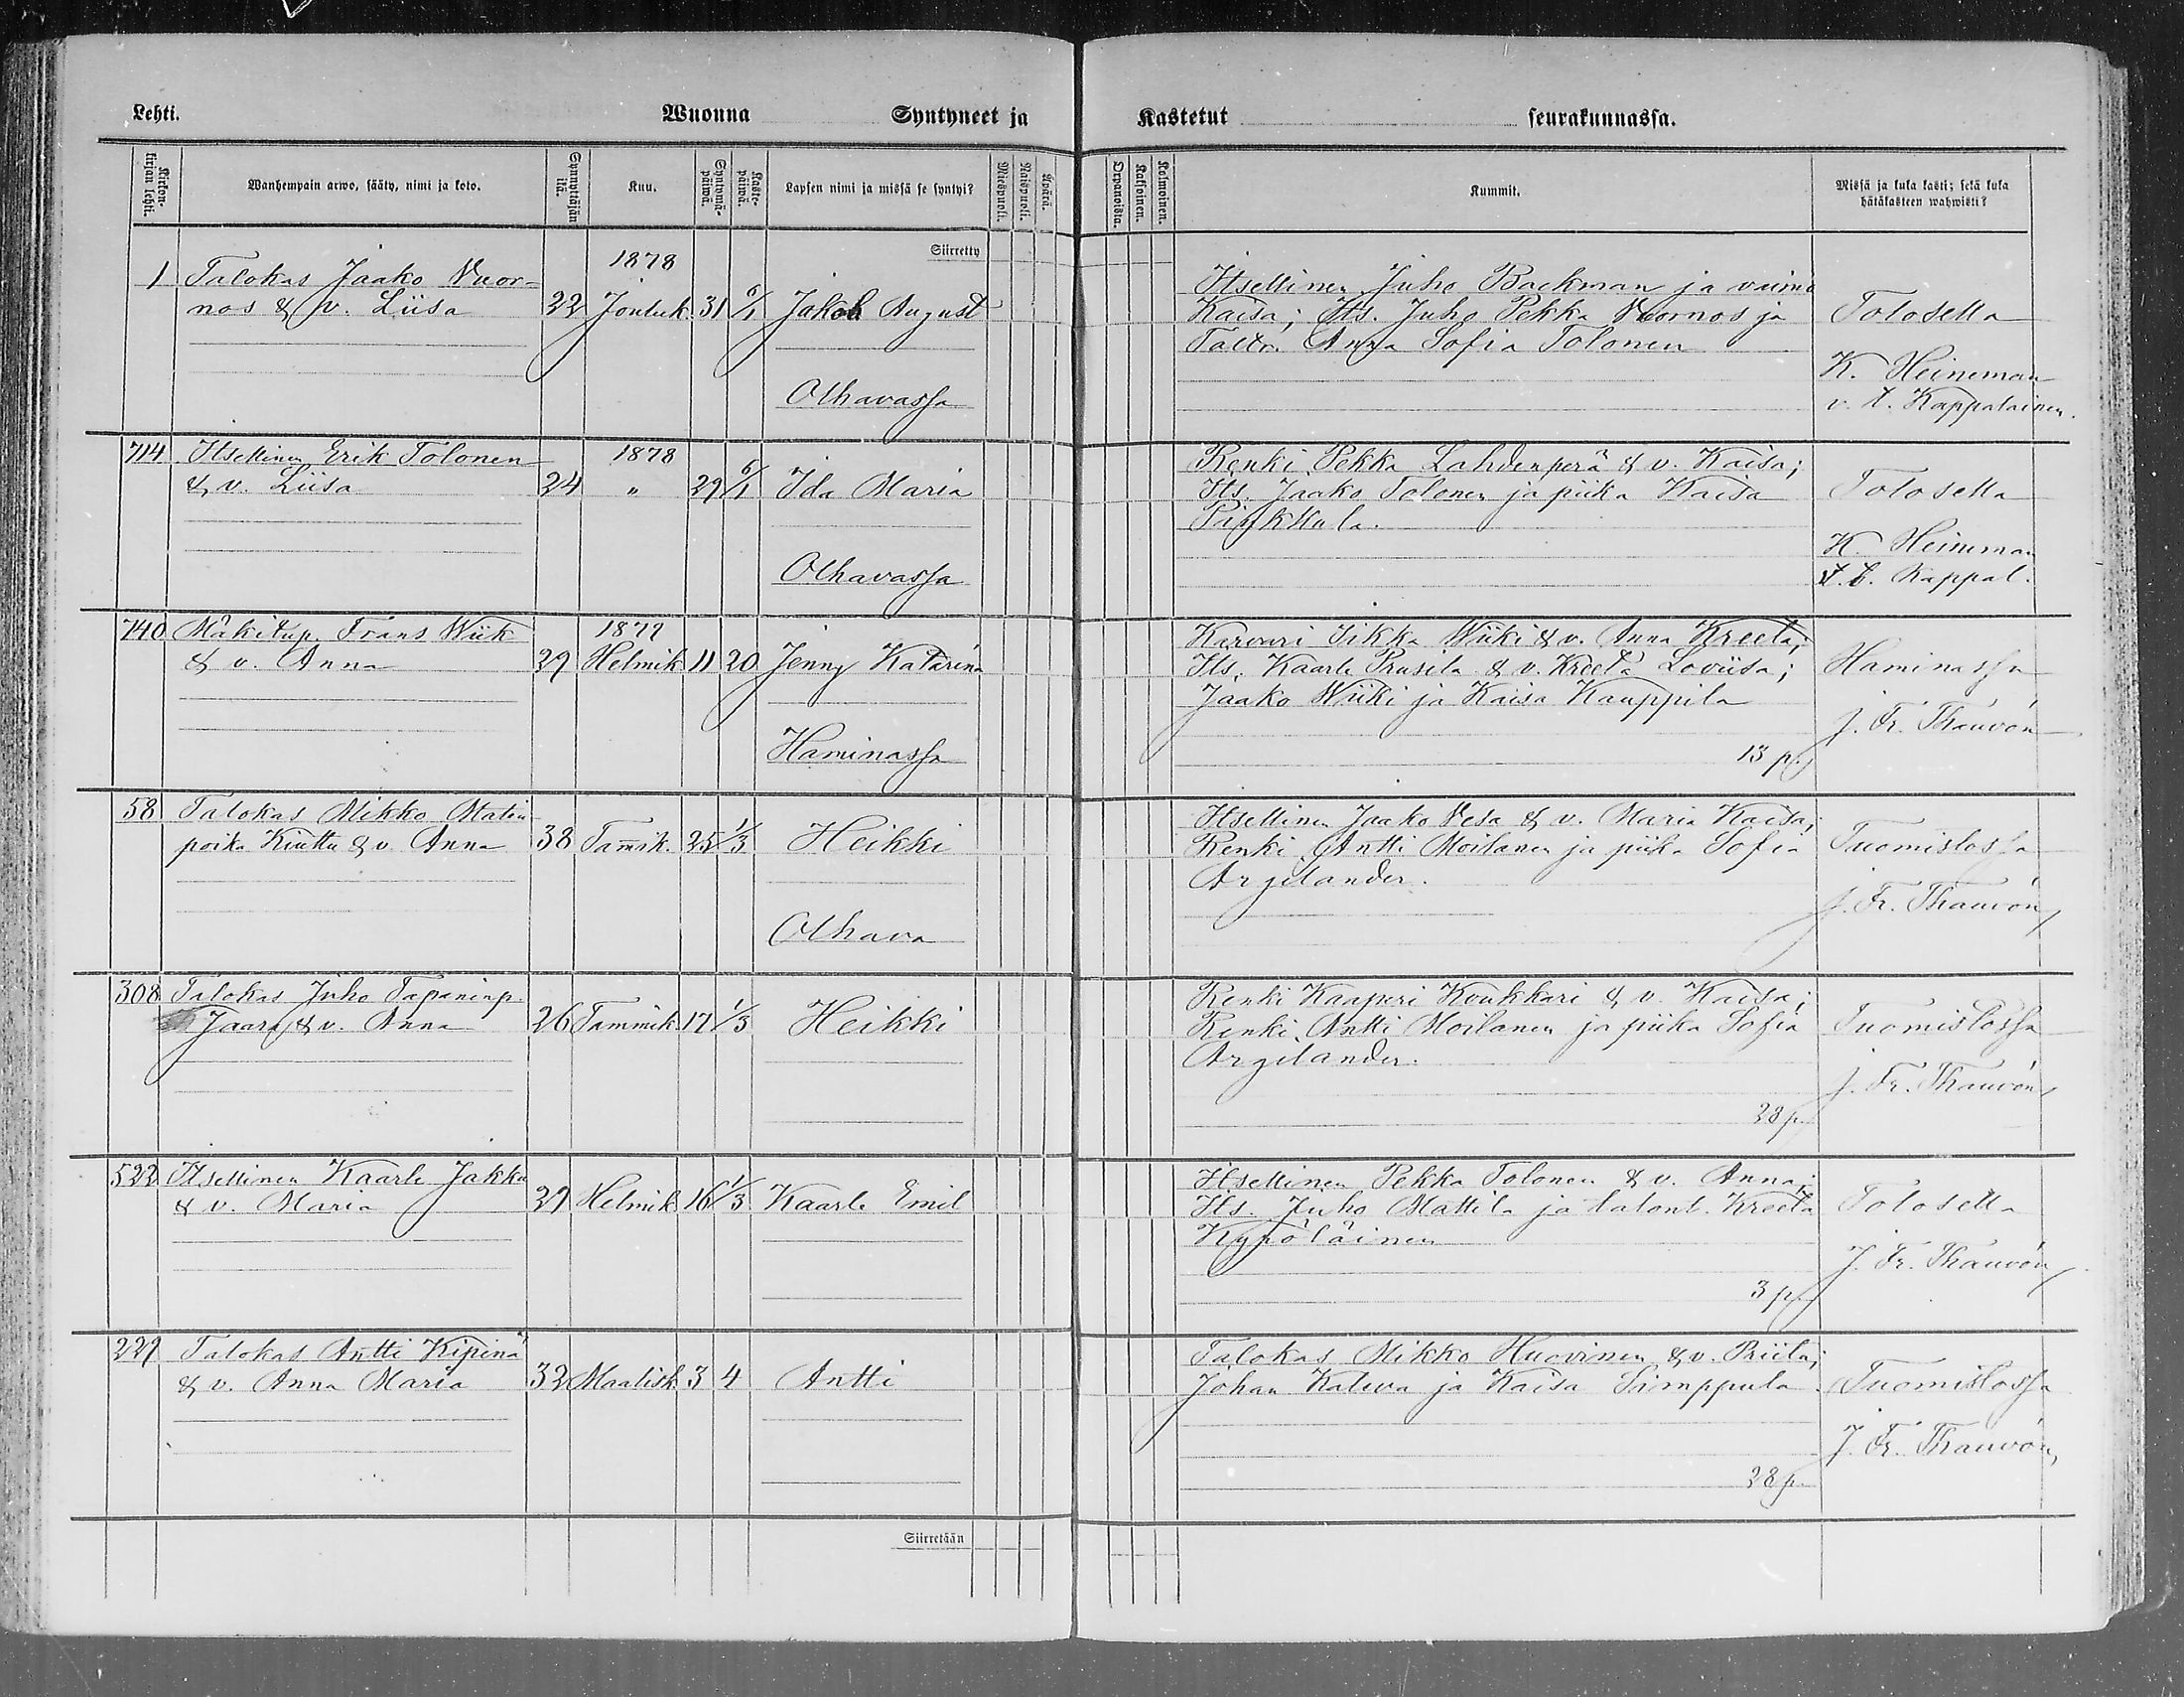 Lehti. Wuonna Syntyneet ja
Kirkonkirjan lehti. Wanhempain arwo, sääty, nimi ja koto. Synnyttäjän ikä. Kuu. Syntymäpäiwä. Kastepäiwä. Lapsen nimi ja missä se syntyi? Miespuoli. Naispuoli. Äpärä.
Siirretty
1 Talokas Jaako Vuor- 1878
nos & v. Liisa 22 Jouluk. 31 6/1 Jakob August
Olhavassa
714 Itsellinen Erik Tolonen 1878
& v. Liisa 24 " 29 6/1 Ida Maria
Olhavassa
740 Mäkitup. Frans Wiik 1879
& v. Anna 29 Helmik 11 20 Jenny Katarina
Haminassa
58 Talokas Mikko Matin
poika Kiuttu & v. Anna 38 Tammik. 25 1/3 Heikki
Olhava
308 Talokas Juho Tapaninp.
Jaara & v. Anna 26 Tammik 17 1/3 Heikki
522 Itsellinen Kaarle Jakku
& v. Maria 29 Helmik 16 1/3 Kaarle Emil
229 Talokas Antti Kipinä
& v. Anna Maria 32 Maalisk 3 4 Antti
Siirretään
Kastetut seurakunnassa.
Orpanoista. Kaksoinen. Kolmoinen. Kummit. Missä ja kuka kasti; sekä kuka hätäkasteen wahwisti?
Itsellinen Juho Backman ja vaimo
Kaisa; Its. Juho Pekka Vuornos ja Tolosella
Taltr. Anna Sofia Tolonen
K. Heineman
v. t. Kappalainen.
Renki Pekka Lahdenperä & v. Kaisa;
Its. Jaako Tolonen ja piika Kaisa Tolosella
K. Heineman
v. t. Kappal.
Karvari Iikka Wiiki & v. Anna Kreeta;
Its. Kaarle Prusila & v. Kreeta Loviisa; Haminassa
Jaako Wiiki ja Kaisa Kauppila
J. Fr. Thauvón
13 p.
Itsellinen Jaako Vesa & v. Maria Kaisa;
Renki Antti Moilanen ja piika Sofia Tuomislossa
Argelander.
J. Fr. Thauvón
Renki Kaaperi Koukkari & v. Kaisa;
Renki Antti Moilanen ja piika Sofia Tuomislossa
Argelander.
J. Fr. Thauvón
28 p.
Itsellinen Pekka Tolonen & v. Anna;
Its. Juho Mattila ja talont. Kreeta Tolosella
J. Fr. Thauvón
3 p.
Talokas Mikko Huovinen & v. Priita;
Johan Kaleva ja Kaisa Simppula Tuomislossa
J. Fr. Thauvón
28 p.